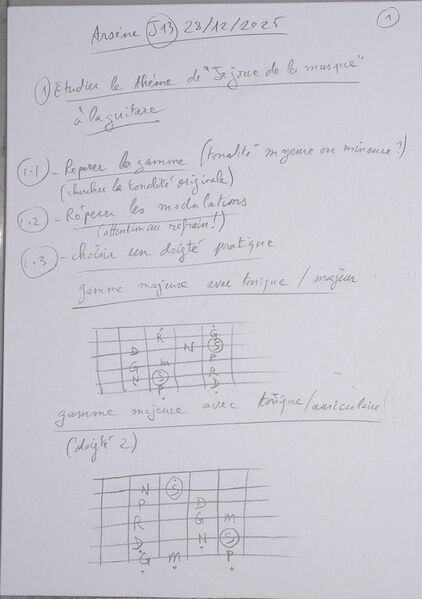 1
Arsène J13 28/12/2025
1 Etudier le thème de "Je joue de la musique"
à la guitare
1.1 - Reperer la gamme (tonalité majeure ou mineure?)
(chercher la tonalité originale)
1.2 - Répérer les modulations
(attention au refrain!)
1.3 - choisir un doigté pratique
gamme majeure avec tonique / majeur
R G
D N S
G m P
N S R
P D
gamme majeure avec tonique/auriculaire
(doigté 2)
N S
P D
R G m
D N S
G m P